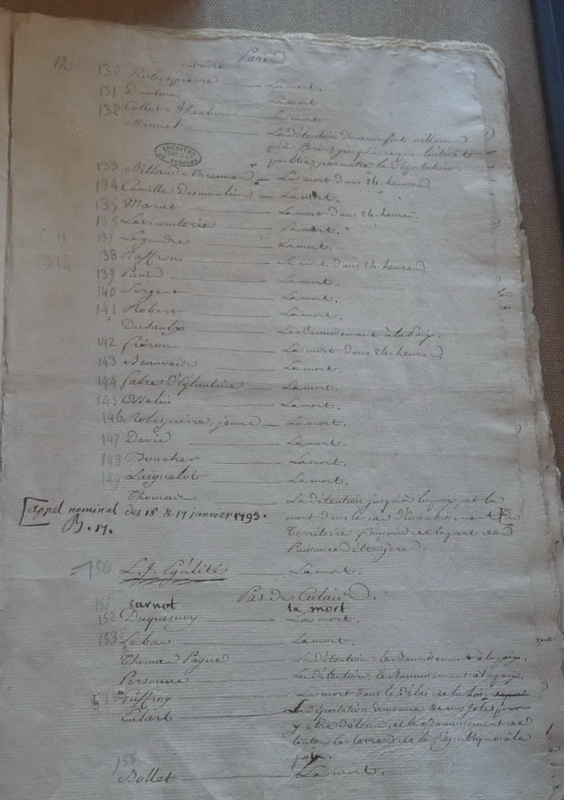 12 Paris
130 Robespierre — La mort.
131 Danton — La mort
132 Collot d'herbois — La mort
Manuel — La détention dans un fort ailleurs
qu'à Paris jusqu'à ce que l'intérêt
public permette la déportation.
ARCHIVES
133 Billaud-Varennes — La mort dans 24. heures.
134 Camille Desmoulins — La mort.
135 Marat — La mort dans 24. heures.
136 Lavicomterie — La mort.
137 Legendre — La mort.
138 Raffron — La mort dans 24. heures
139 Panis — La mort.
140 Sergent — La mort.
141 Robert — La mort.
Dusaulx — Le Bannissement à la Paix.
142 fréron — La mort dans 24. heures
143 Beauvais — La mort.
144 fabre d'Eglantine — La mort.
145 Osselin — La mort.
146 Robespierre, jeune — La mort.
147 David — La mort.
148 Boucher — La mort.
149 Laignelot — La mort.
Thomas — La détention jusqu'à la paix, et la
appel nominal des 16 & 17 janvier 1793. mort dans le cas
P. 17. Territoire français de la part des
Puissances étrangères.
150 L. J. Egalité — La mort.
Pas de Calais.
151 Carnot la mort
152 Duquesnoy — La mort.
153 Lebas — La mort.
Thomas Payne — La détention, le Bannissement à la paix.
Personne — La détention, le Bannissement à la paix.
Guffroy — La mort dans le délai de la loi
Enlart
y être détenu, et le Bannissement de
toutes les terres de la République à la
paix.
158
Bollet — La mort.